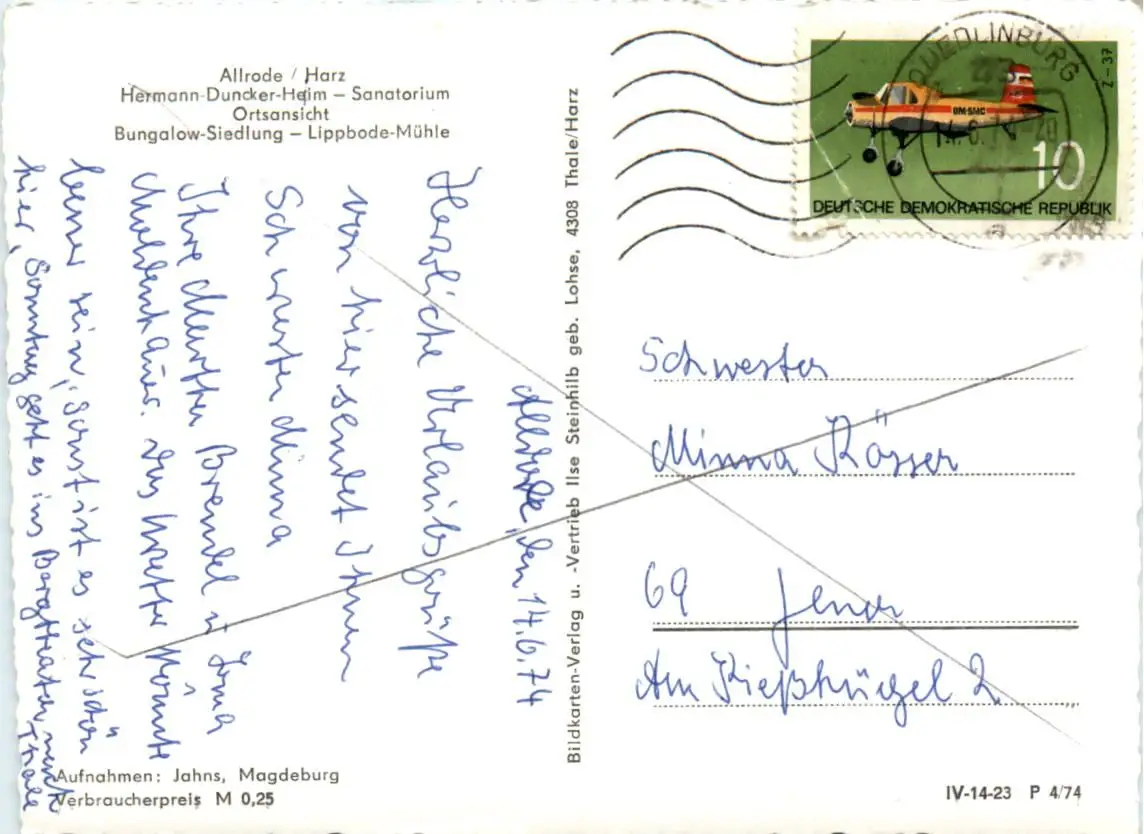 Allrode / Harz
Hermann-Duncker-Heim – Sanatorium
Ortsansicht
Bungalow-Siedlung – Lippbode-Mühle
Allrode, den 14.6.74
Herzliche Urlaubsgrüße
von hier sendet Ihnen
Schwester Minna
Ihre Martha Brendel u. Irma
Moldenhauer. Das Wetter könnte
besser sein, sonst ist es sehr schön
hier, Sonntag geht es ins Bergtheater nach Thale
Aufnahmen: Jahns, Magdeburg
Verbraucherpreis M 0,25
Bildkarten-Verlag u. -Vertrieb Ilse Steinhilb geb. Lohse, 4308 Thale/Harz
QUEDLINBURG
43
14.6.74-20
a
Z-37
DM-SMC
10
DEUTSCHE DEMOKRATISCHE REPUBLIK
Schwester
Minna Rösser
69 Jena
Am Kießhügel 2
IV-14-23 P 4/74